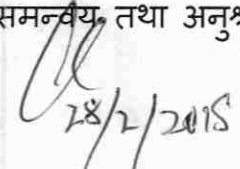 समन्वय, तथा
28/2/2015